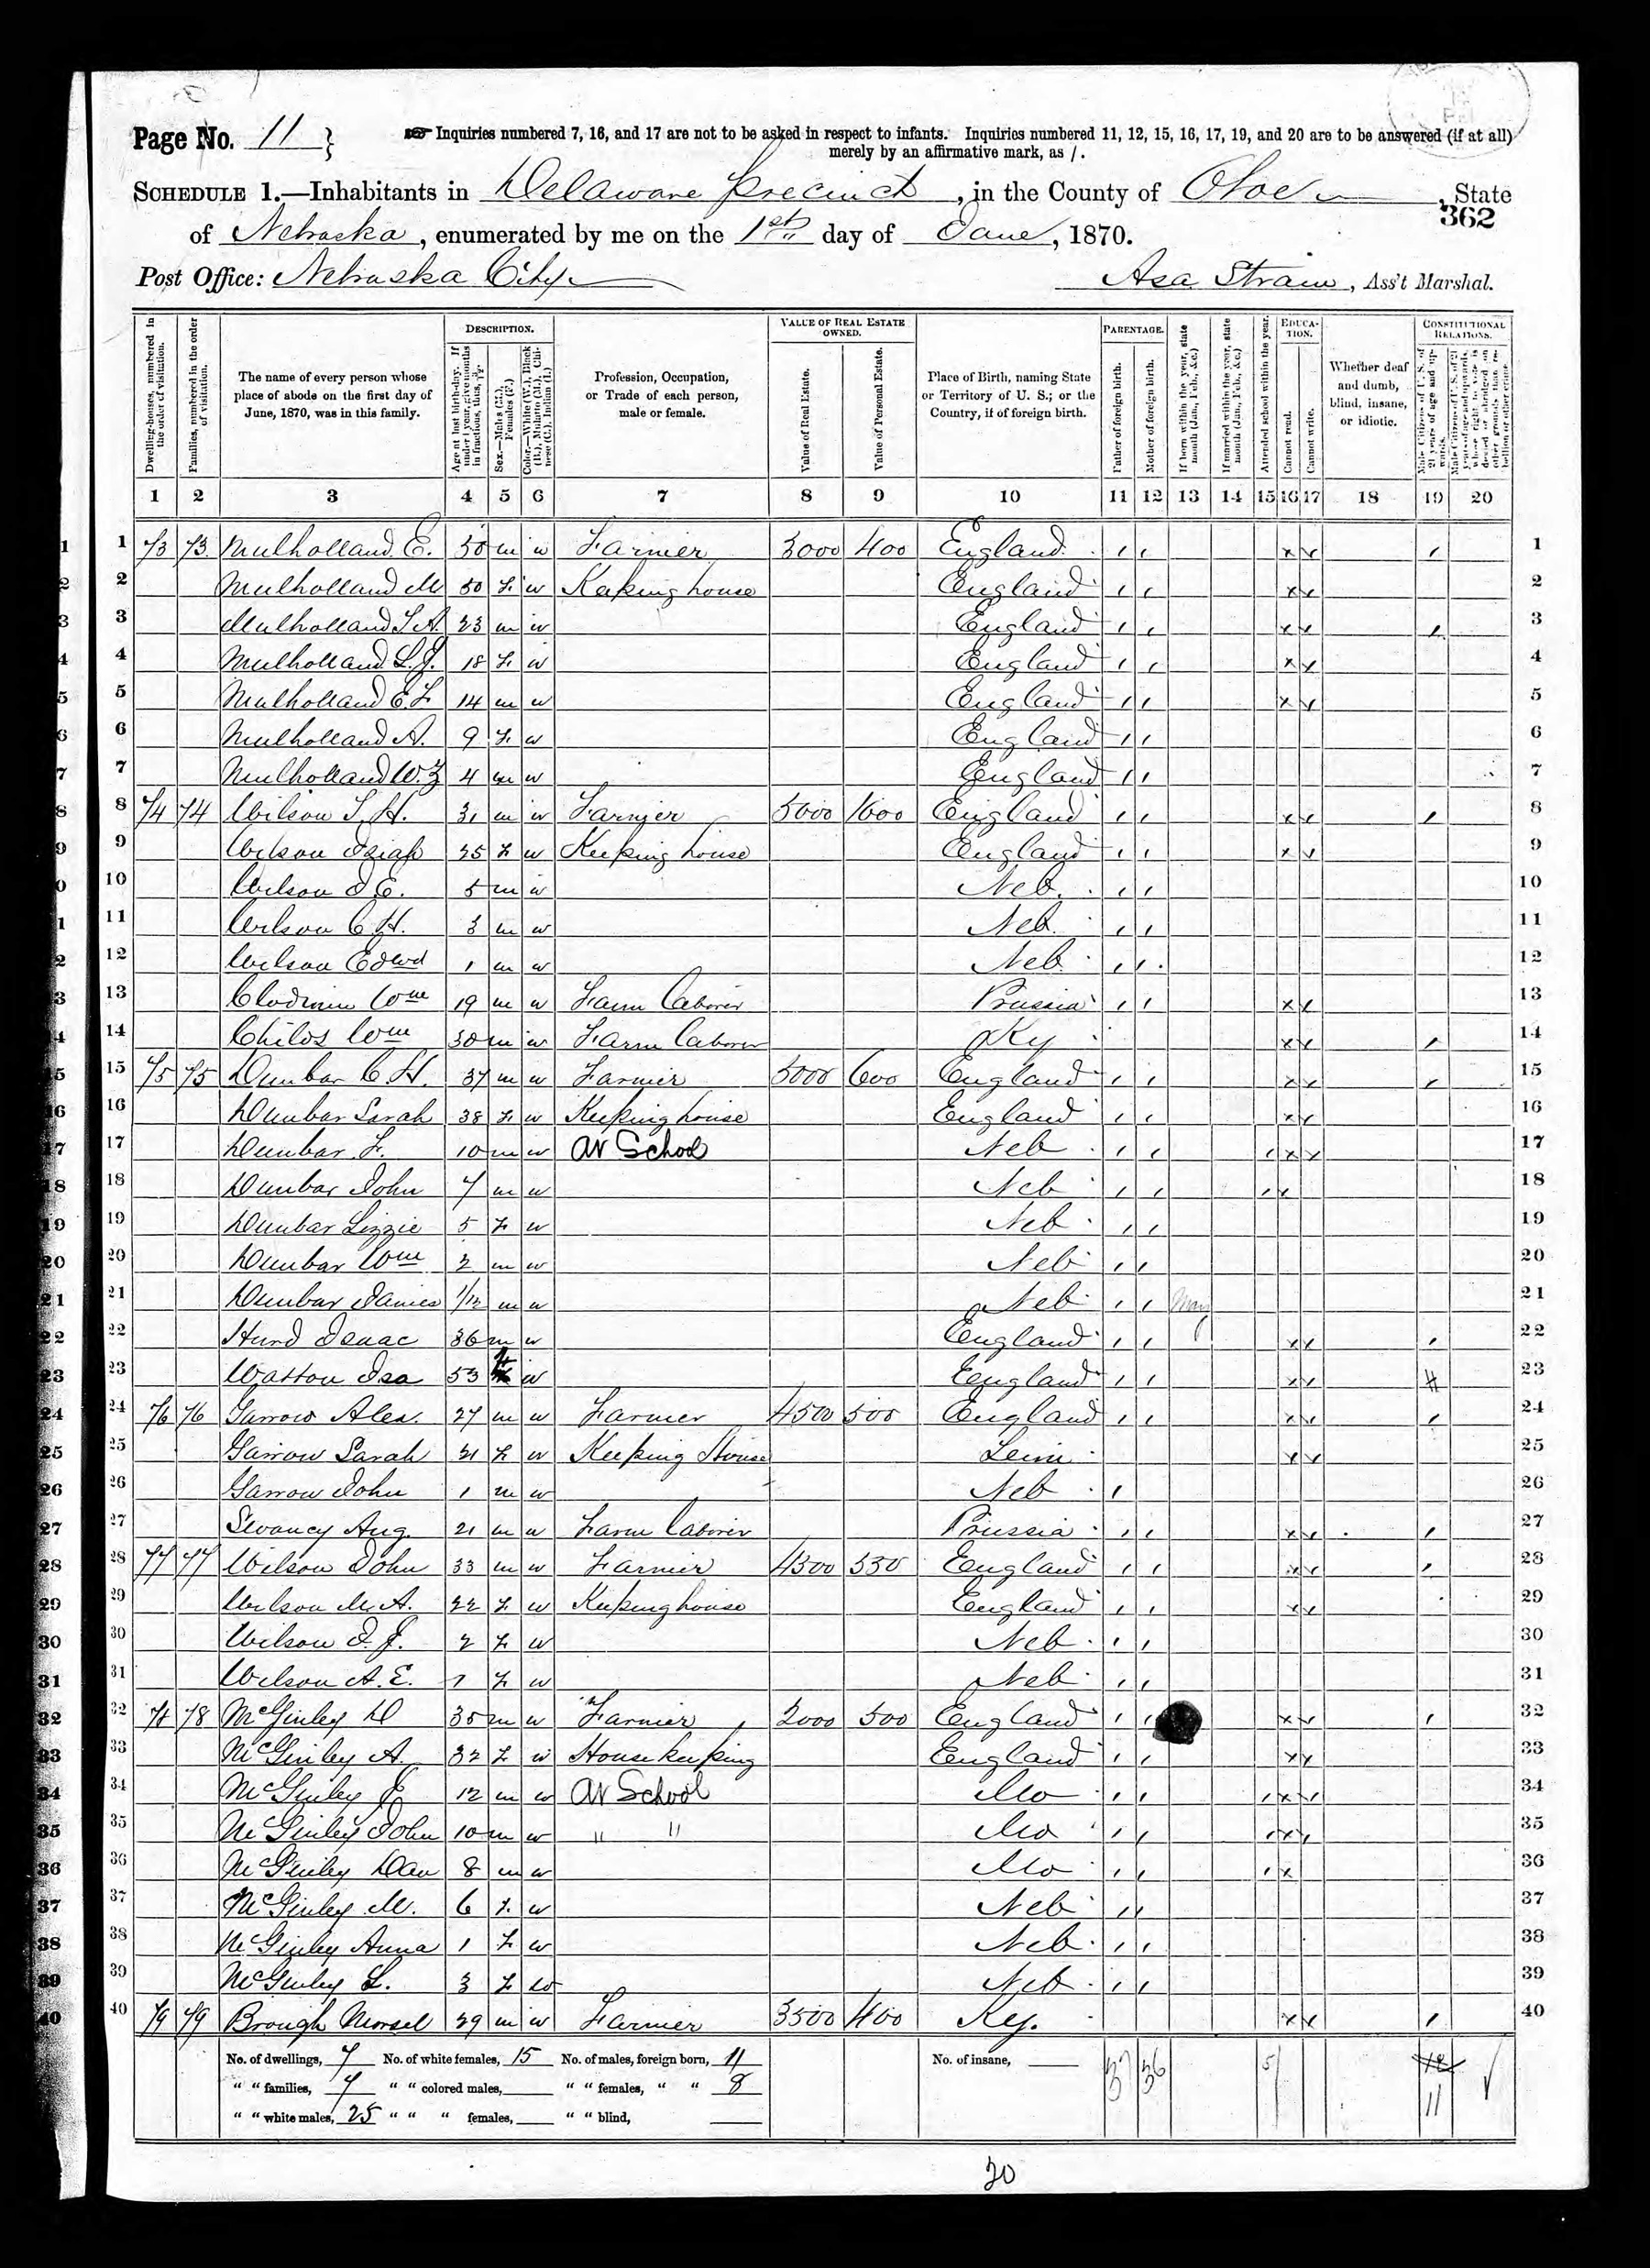 Page No. 11 }
Inquiries numbered 7, 16, and 17 are not to be asked in respect to infants. Inquiries numbered 11, 12, 15, 16, 17, 19, and 20 are to be answered (if at all)
merely by an affirmative mark, as /.
SCHEDULE 1.—Inhabitants in Delaware Precinct, in the County of Otoe, State
362
of Nebraska, enumerated by me on the 1st day of June, 1870.
Post Office: Nebraska City
Asa Strain, Ass't Marshal.
Dwelling-houses, numbered in the order of visitation.
Families, numbered in the order of visitation.
The name of every person whose place of abode on the first day of June, 1870, was in this family.
DESCRIPTION.
Age at last birth-day. If under 1 year, give months in fractions, thus, 3/12.
Sex.—Males (M.), Females (F.)
Color.—White (W.), Black (B.), Mulatto (M.), Chinese (C.), Indian (I.)
Profession, Occupation, or Trade of each person, male or female.
VALUE OF REAL ESTATE OWNED.
Value of Real Estate.
Value of Personal Estate.
Place of Birth, naming State or Territory of U. S.; or the Country, if of foreign birth.
PARENTAGE.
Father of foreign birth.
Mother of foreign birth.
If born within the year, state month (Jan., Feb., &c.)
If married within the year, state month (Jan., Feb., &c.)
Attended school within the year.
EDUCATION.
Cannot read.
Cannot write.
Whether deaf and dumb, blind, insane, or idiotic.
CONSTITUTIONAL RELATIONS.
Male Citizens of U. S. of 21 years of age and upwards.
Male Citizens of U. S. of 21 years of age and upwards, whose right to vote is denied or abridged on other grounds than rebellion or other crime.
1 2 3 4 5 6 7 8 9 10 11 12 13 14 15 16 17 18 19 20
1 73 73 Mulholland E. 50 m w Farmer 3000 400 England / / x x / 1
2 Mulholland M 50 F w Keeping house England / / x x 2
3 Mulholland T A. 23 m w England / / x x / 3
4 Mulholland L. J. 18 F w England / / x x 4
5 Mulholland E F 14 m w England / / x x 5
6 Mulholland A. 9 F w England / / 6
7 Mulholland W. Z 4 m w England / / 7
8 74 74 Wilson T. H. 31 m w Farmer 5000 1600 England / / x x / 8
9 Wilson 25 F w Keeping house England / / x x 9
10 Wilson J E. 5 m w Neb. / / 10
11 Wilson C H. 3 m w Neb. / / 11
12 Wilson Edwd 1 m w Neb / / 12
13 Wm 19 m w Farm laborer Prussia / / x x 13
14 Childs Wm 30 m w Farm laborer Ky x x / 14
15 75 75 Dunbar C H. 37 m w Farmer 3000 600 England / / x x / 15
16 Dunbar Sarah 38 F w Keeping house England / / x x 16
17 Dunbar F. 10 m w At School Neb / / / x x 17
18 Dunbar John 7 m w Neb / / / x 18
19 Dunbar Lizzie 5 F w Neb / / 19
20 Dunbar Wm 2 m w Neb / / 20
21 Dunbar James 1/12 m w Neb / / May 21
22 Hurd Isaac 36 m w England / / x x / 22
23 Watton Isa 53 w England / / x x 23
24 76 76 Garrow Alex. 27 m w Farmer 4500 500 England / / x x / 24
25 Garrow Sarah 21 F w Keeping House x x 25
26 Garrow John 1 m w Neb / 26
27 Swancy Aug. 21 m w Farm laborer Prussia / / x x / 27
28 77 77 Wilson John 33 m w Farmer 4500 550 England / / x x / 28
29 Wilson M. A. 22 F w Keeping house England / / x x 29
30 Wilson I. J. 2 F w Neb / / 30
31 Wilson A. E. 1 F w Neb / / 31
32 78 78 McGinley D 35 m w Farmer 2000 500 England / / x x / 32
33 McGinley A. 32 F w House keeping England / / x x 33
34 McGinley E 12 m w At School Mo / / / x x 34
35 McGinley John 10 m w " " Mo / / / x x 35
36 McGinley Dan 8 m w Mo / / / x 36
37 McGinley M. 6 F. w Neb / / 37
38 McGinley Anna 1 F w Neb / / 38
39 McGinley L. 3 F w Neb / / 39
40 79 79 Brough Morsel 29 m w Farmer 3500 400 Ky. x x / 40
No. of dwellings, 7 No. of white females, 15 No. of males, foreign born, 11 No. of insane, 37 36 5 12
" " families, 7 " " colored males, " " females, " " 8 11
" " white males, 25 " " " females, " " blind,
20